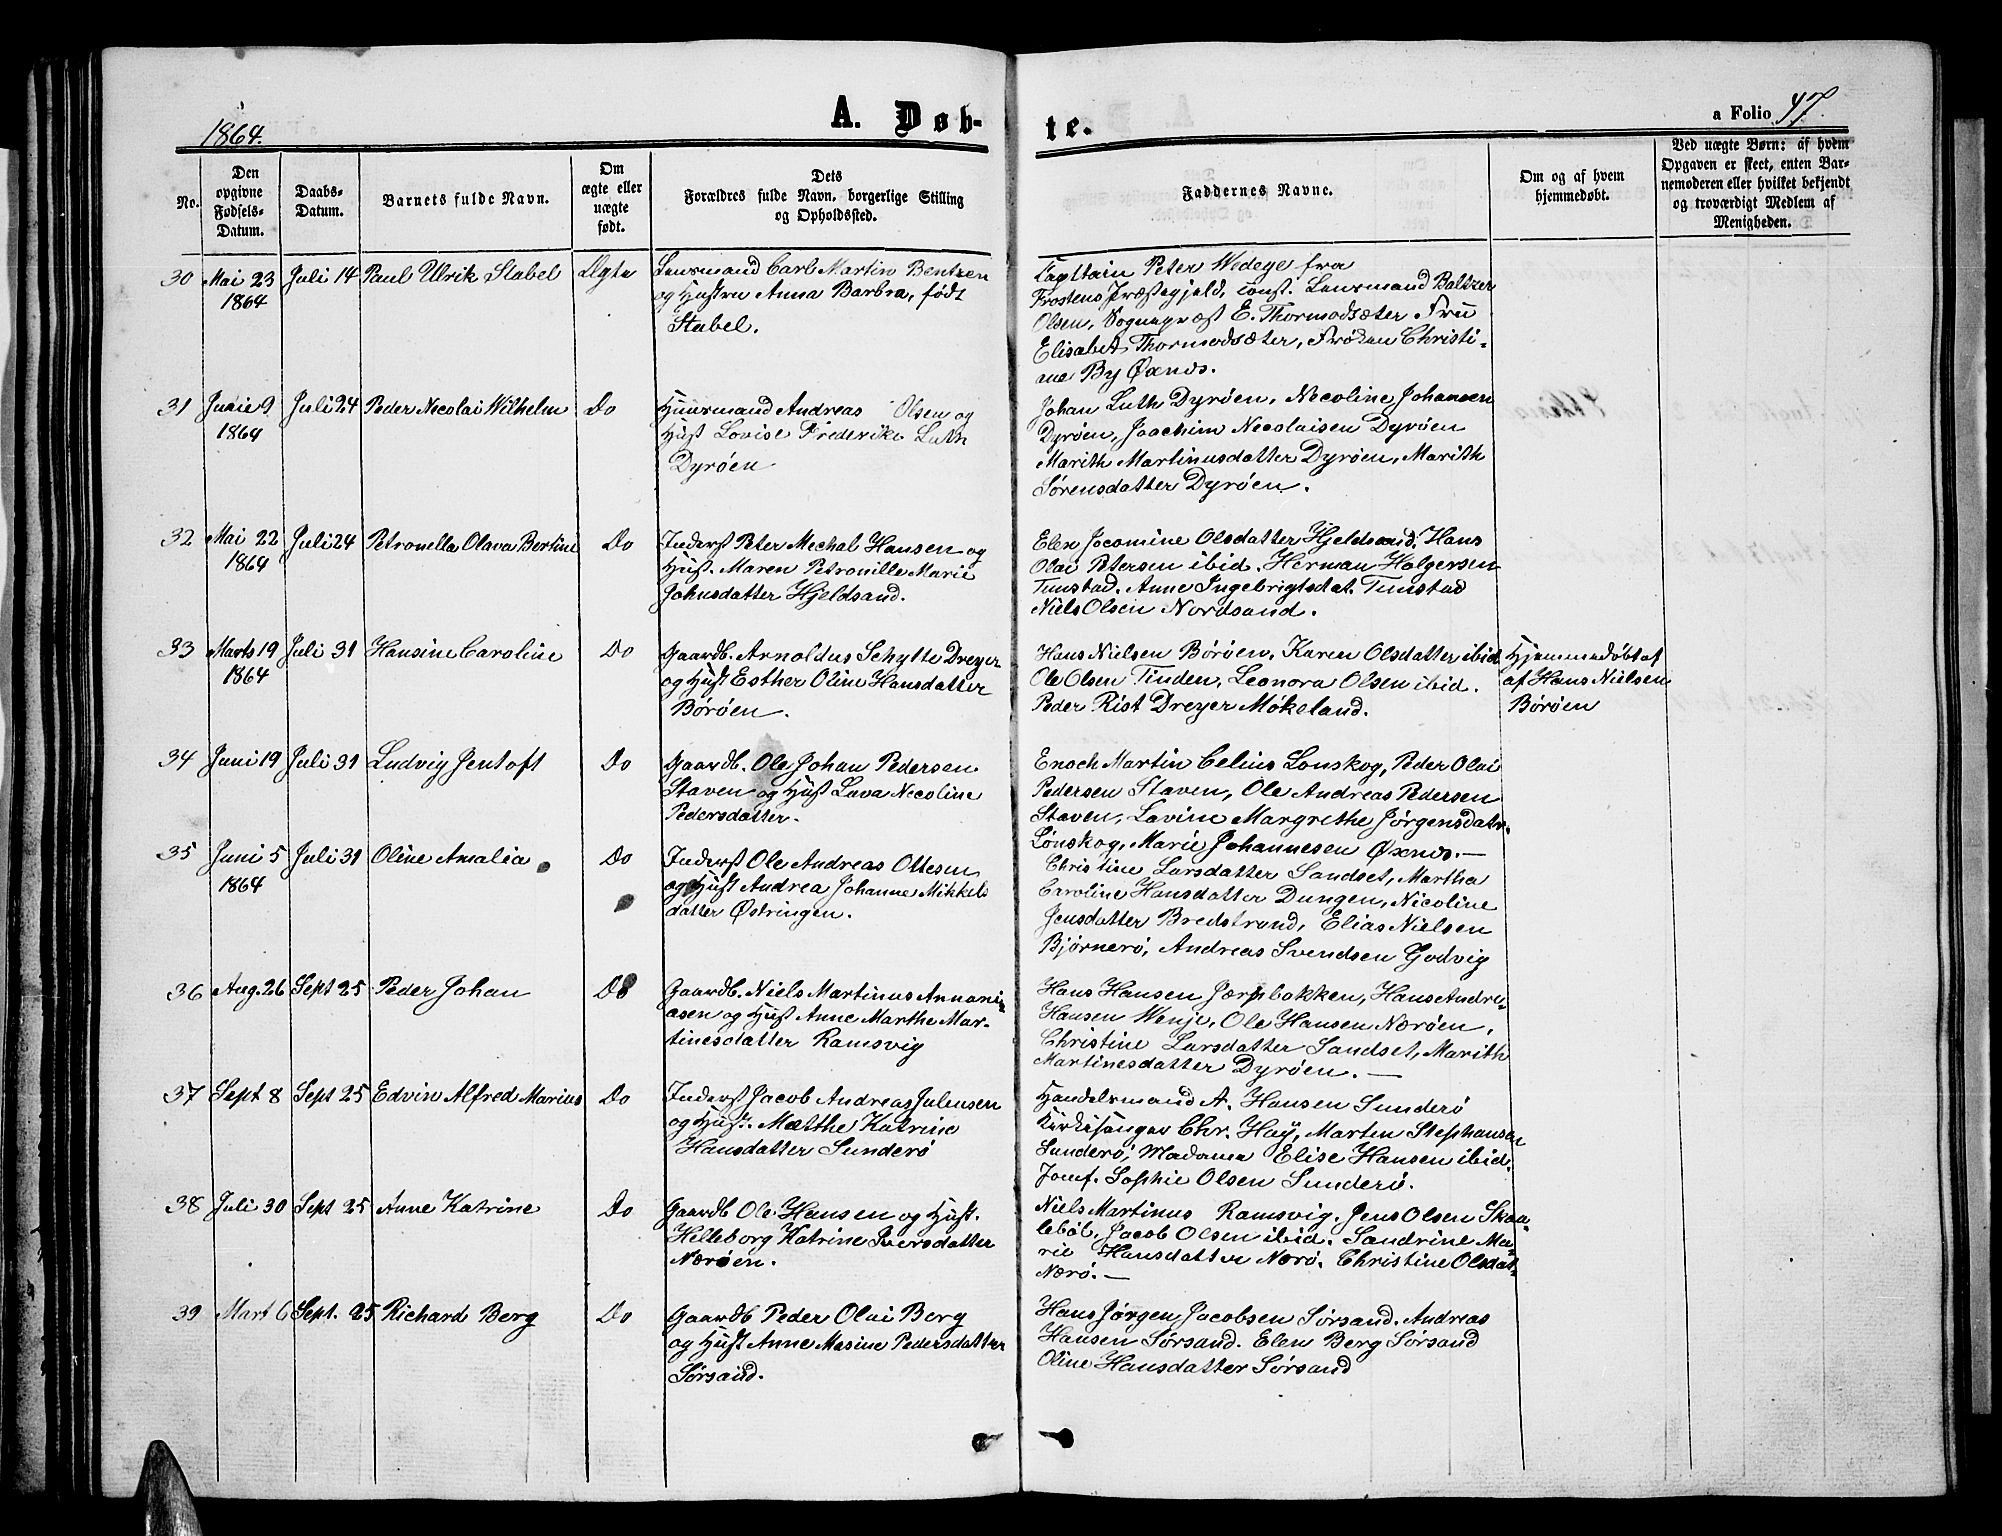 1864.
A. Døb-
te.
a Folio 47.
No.
Den opgivne Fødsels-Datum.
Daabs-Datum.
Barnets fulde Navn.
Om ægte eller uægte født.
Dets
Forældres fulde Navn, borgerlige Stilling
og Opholdssted.
Faddernes Navne.
Om og af hvem
hjemmedøbt.
Ved uægte Børn: af hvem
Opgaven er skeet, enten Bar-
nemoderen eller hvilket bekjendt
og troværdigt Medlem af
Menigheden.
30 Mai 23 1864 Juli 14 Paul Ulrik Stabel Ægte
Lensmand Carl Martin Bentzen
og Hustru Anna Barbra, født
Stabel.
Capttain Peter Wedege fra
Trostens Præstegjeld, const. Lensmand Baltzer
Olsen, Sognepræst E. Thormodsæter Fru
Elisabet Thormodsæter, Frøken Christi-
ane By Øxnes.
31 Junie 9 1864 Juli 24 Peder Nicolai Wilhelm Do
Huusmand Andreas Olsen og
Hust Lovise Frederike Luth
Dyrøen
Johan Luth Dyrøen, Necoline Johansen
Dyrøen, Joachim Necolaisen Dyrøen
Marith Martinusdatter Dyrøen, Marith
Sørensdatter Dyrøen.
32 Mai 22 1864 Juli 24 Petronella Olava Bertine Do
Inderst Peter Mechal Hansen og
Hust. Maren Petronille Marie
Johnsdatter Hjeldsand.
Elen Jacomine Olsdatter Hjeldsand, Hans
Olai Petersen ibid. Herman Holgersen
Tunstad. Anne Ingebrigtsdat. Tunstad
Niels Olsen Nordsand.
33 Marts 19 1864 Juli 31 Hansine Caroline Do
Gaardb. Arnoldus Schytte Dreyer
og Hust Esther Oline Hansdatter
Børøen.
Hans Nielsen Børøen, Karen Olsdatter ibid
Ole Olsen Tinden, Leonora Olsen ibid.
Peder Rist Dreyer Møkeland.
Hjemmedøbt af
af Hans Nielsen
Børøen
34 Juni 19 Juli 31 Ludvig Jentoft Do
Gaardb. Ole Johan Pedersen
Staven og Hust Lava Necoline
Pedersdatter.
Enoch Martin Celius Lonskog, Peder Olai
Pedersen Staven, Ole Andreas Pedersen
Staven, Lavine Margrethe Jørgensdatr.
Lønskog, Marie Johannesen Øxnes.—
35 Juni 5 1864 Juli 31 Oline Amalia Do
Inderst Ole Andreas Ottesen
og Hust Andrea Johanne Mikkels
datter Østringen.
Christine Larsdatter Sandset, Martha
Caroline Hansdatter Dungen, Nicoline
Jensdatter Bredstrand, Elias Nielsen
Bjørnerö, Andreas Svendsen Godvig
36 Aug. 26 Sept 25 Peder Johan Do
Gaardb. Niels Martinus Annani-
asen og Hust Anne Marthe Mar-
tinesdatter Ramsvig
Hans Hansen Jærnbakken, Hans Andre-
Hansen Wenje, Ole Hansen Nærøen,
Christine Larsdatter Sandset, Marith
Martinesdatter Dyrøen.—
37 Sept 8 Sept 25 Edvin Alfred Marius Do
Inderst Jacob Andreas Julensen
og Hust. Mætthe Katrine
Hansdatter Sunderö
Handelsmand A. Hansen Sunderö
Kirkesanger Chr. Høÿ, Martin Stephansen
Sunderö, Madame Elise Hansen ibid.
Jomf. Sophie Olsen Sunderö.
38 Juli 30 Sept 25 Anne Katrine Do
Gaardb Ole Hansen og Hust.
Helleborg Katrine Iversdatter
Nærøen.
Niels Martinus Ramsvig. Jens Olsen Skou-
lebøl, Jacob Olsen ibid. Sandrine Ma-
rie Hansdatter Nærö. Christine Olsdat-
Nærö.—
39 Mart 6 Sept. 25 Richard Berg Do
Gaardb Peder Olai Berg
og Hust Anne Masine Pedersdatter
Sørsand.
Hans Jørgen Jacobsen Sørsand. Andreas
Hansen Sørsand. Elen Berg Sørsand
Oline Hansdatter Sørsand